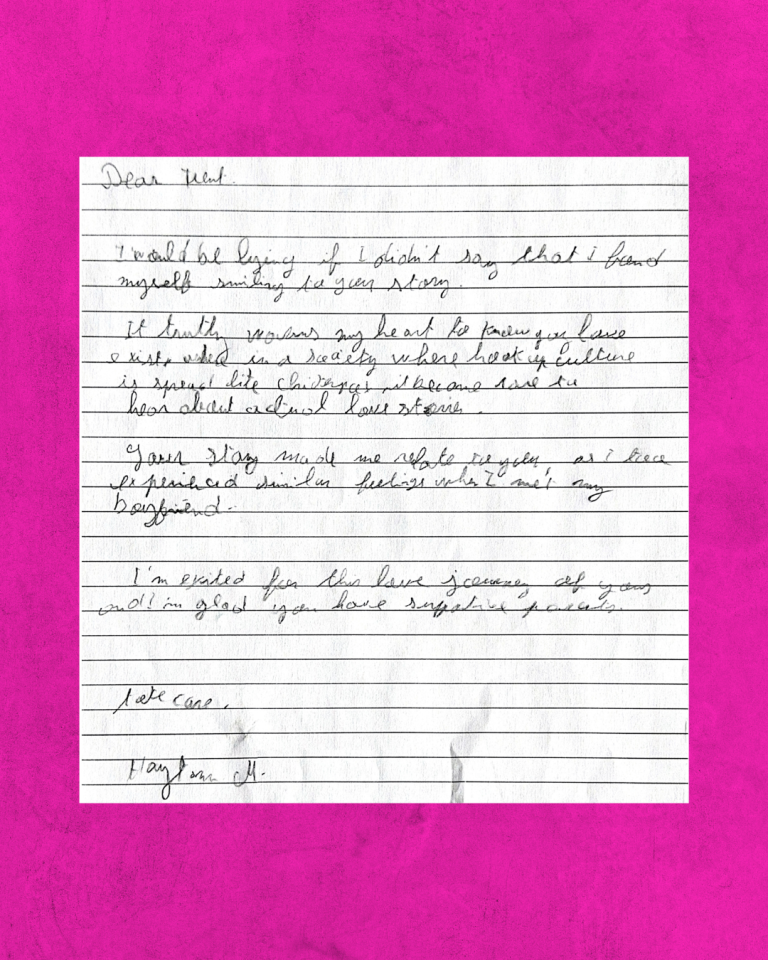 Dear Trent.
I would be lying if I didn't say that i found
myself smiling to your story.
It truthly warms my heart to know you love
exist, in a society where hook up culture
is spread like it became rare to
hear about actual love stories.
Your story made me relate to you, as i have
experienced similar feelings when I met my
boyfriend.
I'm exited for this love journey of yours
and I'm glad you have supportive parents.
take care,
M.